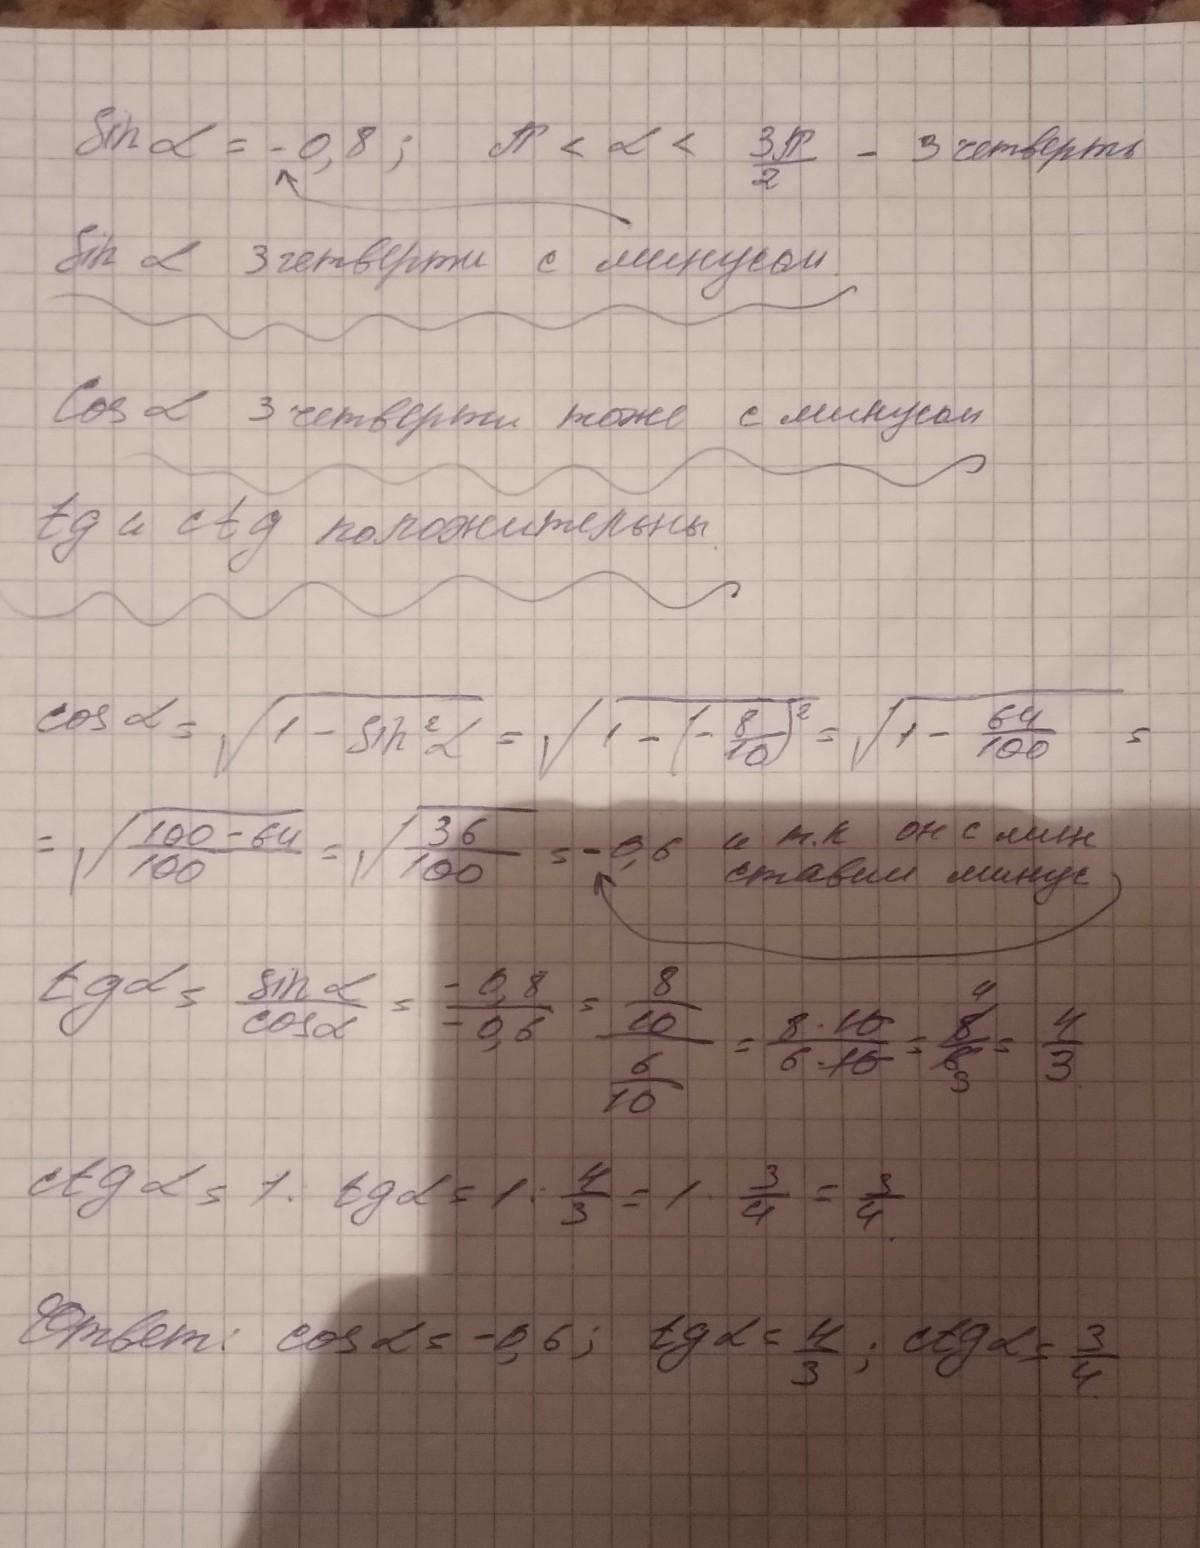 Sin α = -0,8; π < α < 3π/2 - 3 четверть
Sin α 3 четверти с минусом
Cos α 3 четверти тоже с минусом
tg и ctg положительны.
cos α = √(1 - sin²α) = √(1 - (-8/10)²) = √(1 - 64/100) =
= √((100-64)/100) = √(36/100) = -0,6 и т.к он с мин
ставим минус
tg α = sin α/cos α = -0,8/-0,6 = (8/10)/(6/10) = (8·10)/(6·10) = 8/6 = 4/3
ctg α = 1 : tg α = 1 : 4/3 = 1 · 3/4 = 3/4.
Ответ: cos α = -0,6; tg α = 4/3; ctg α = 3/4.